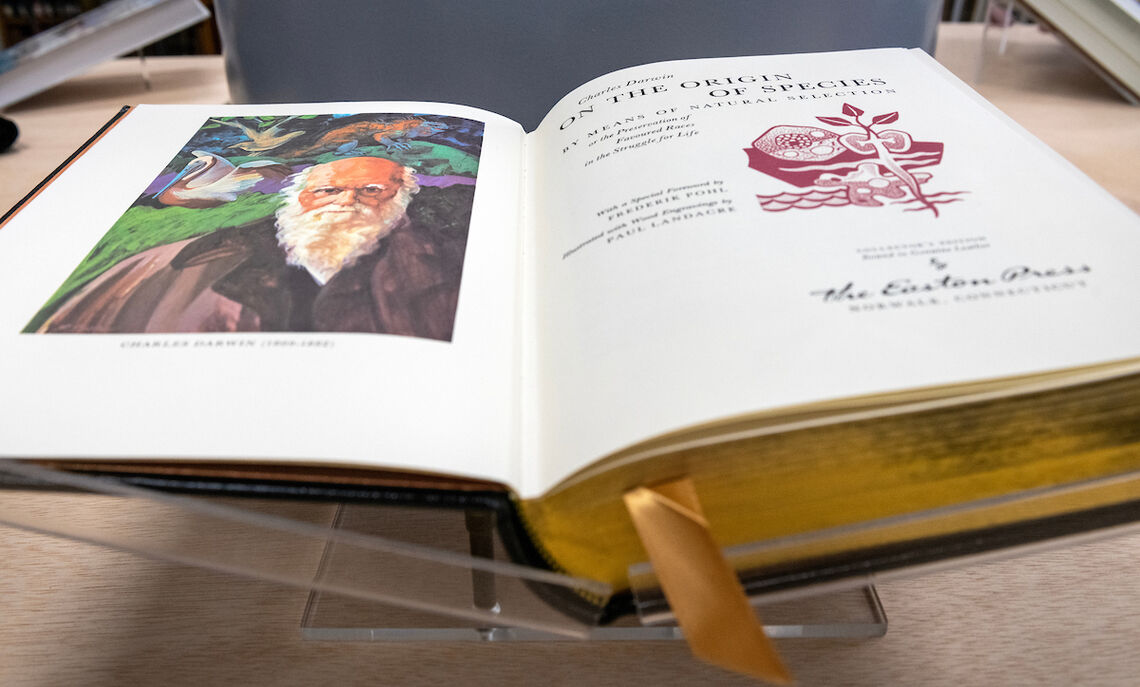 CHARLES DARWIN (1809-1882)
Charles Darwin
ON THE ORIGIN
OF SPECIES
BY MEANS OF NATURAL SELECTION
or the Preservation of
Favoured Races
in the Struggle for Life
With a Special Foreword by
FREDERIK POHL
Illustrated with Wood Engravings by
PAUL LANDACRE
COLLECTOR'S EDITION
Bound in Genuine Leather
The Easton Press
NORWALK, CONNECTICUT